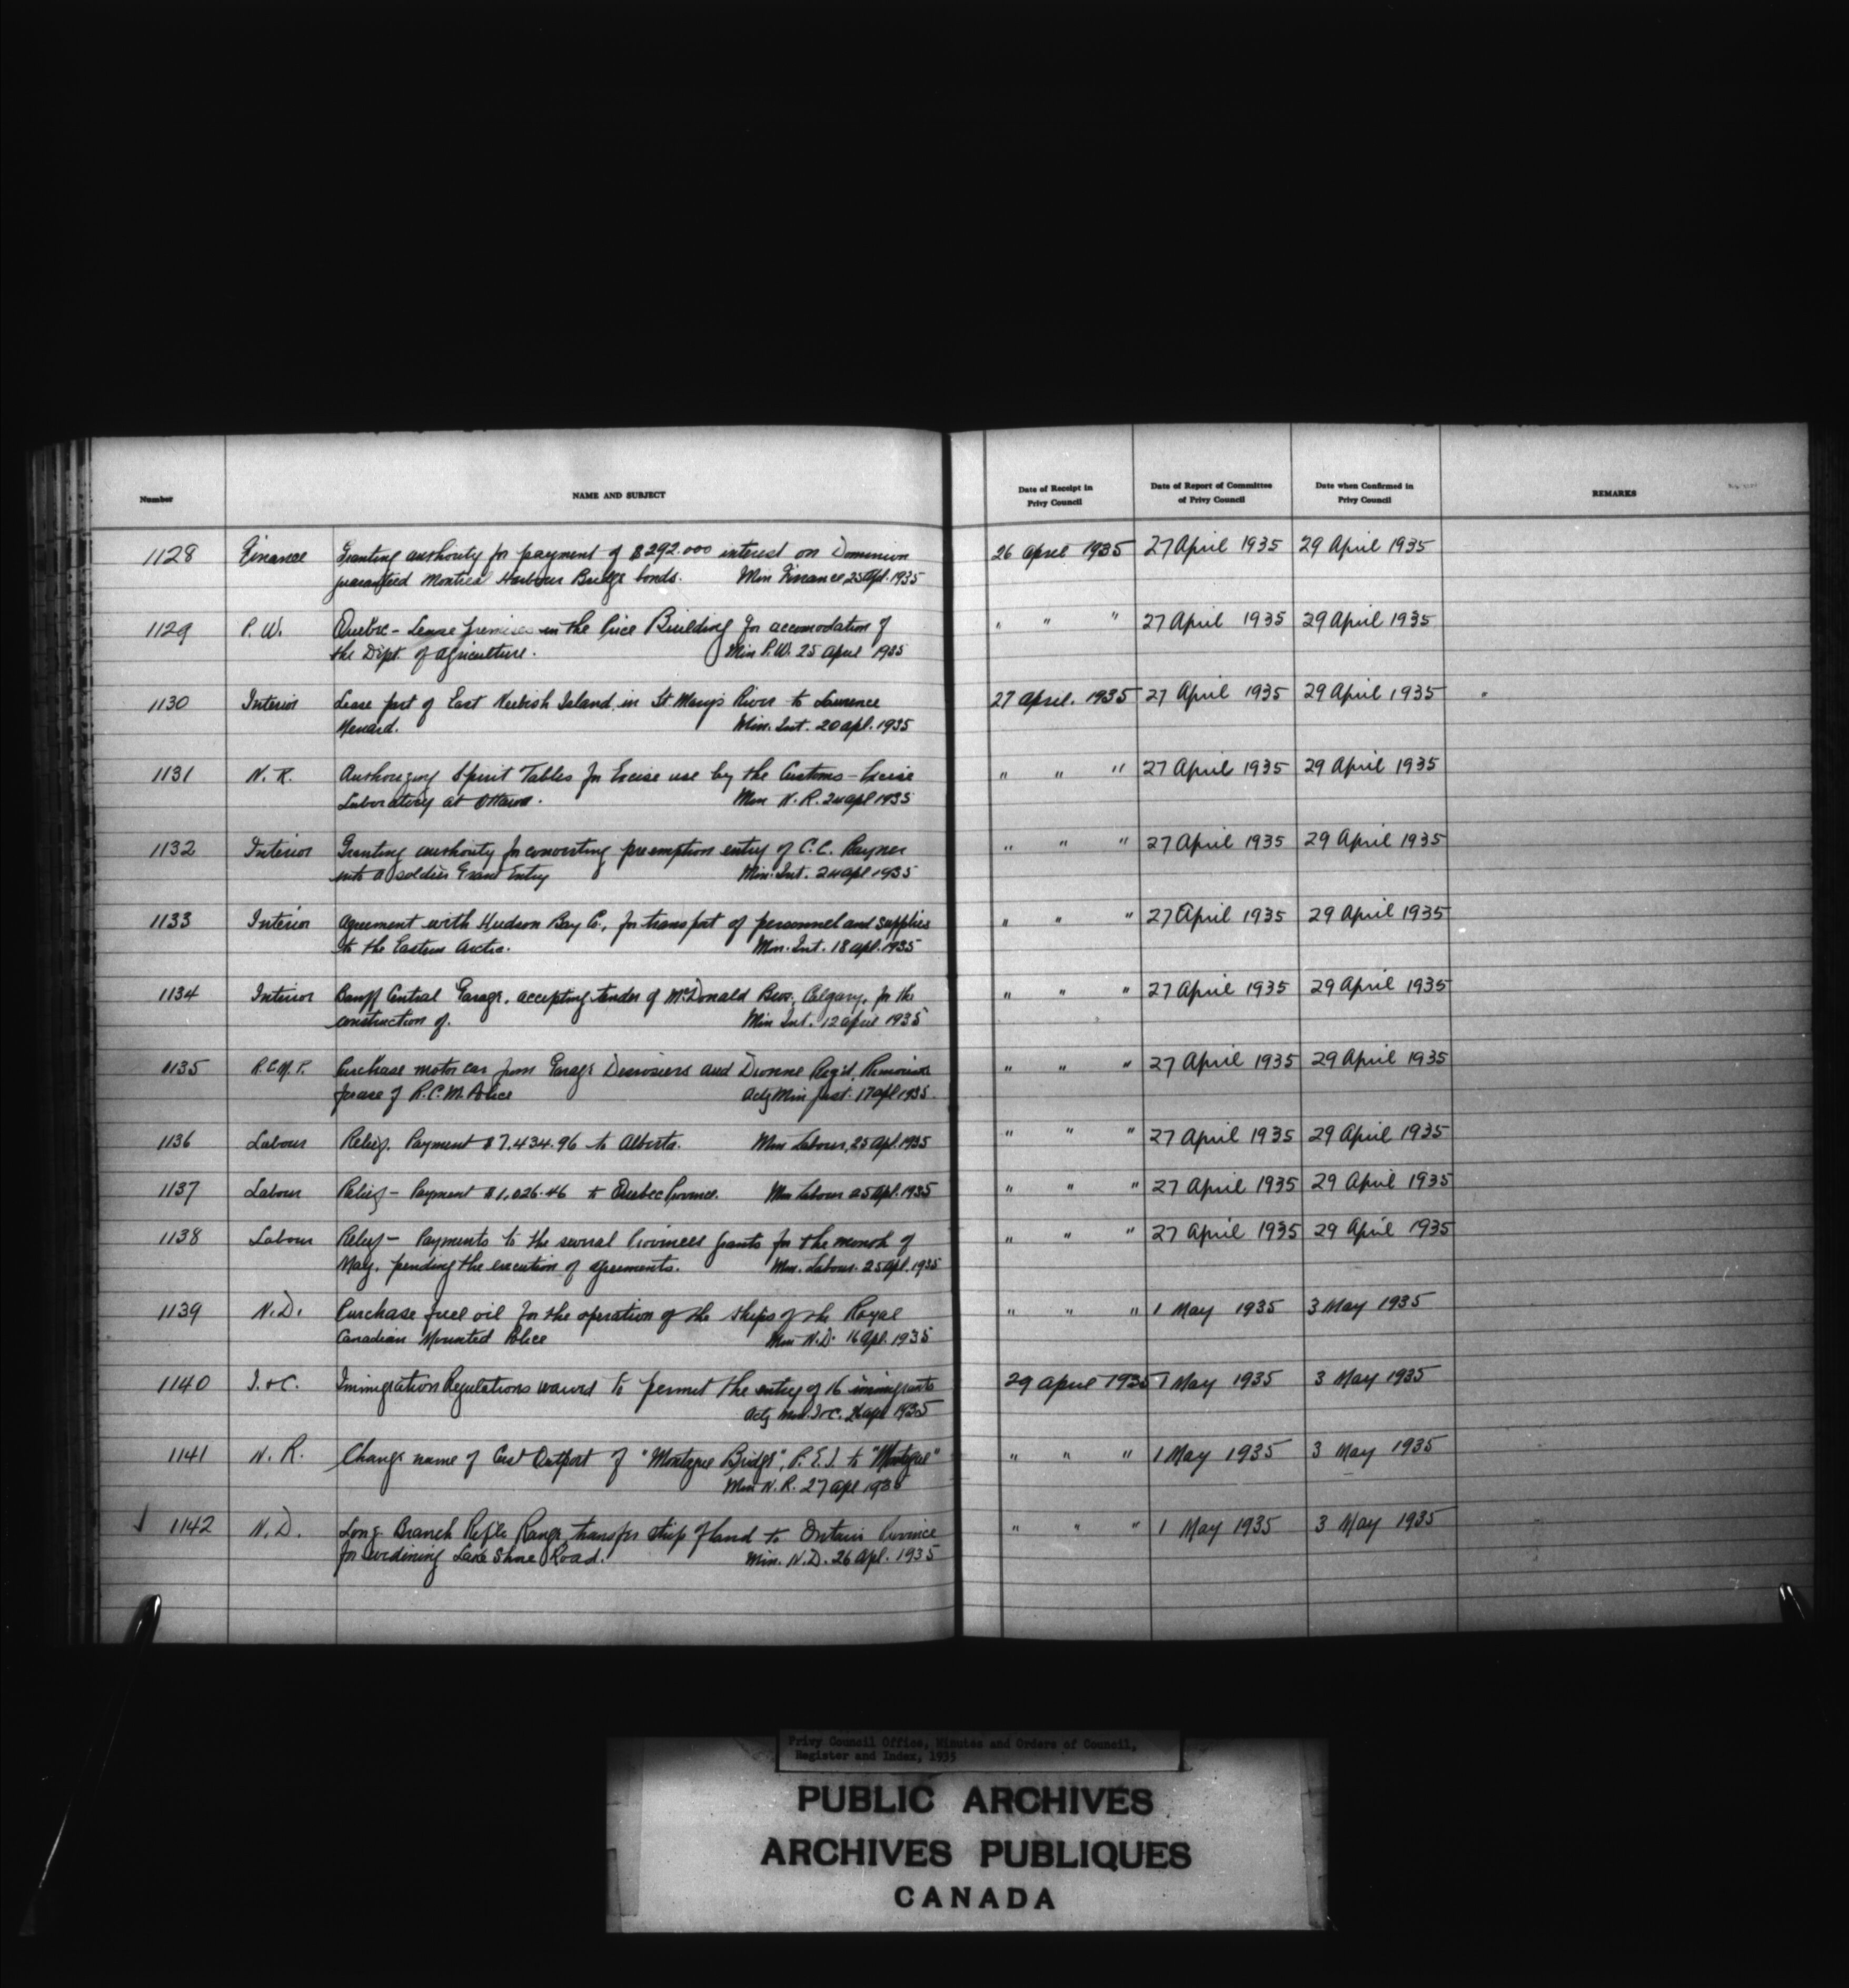 Number
NAME AND SUBJECT
Date of Receipt in Privy Council
Date of Report of Committee of Privy Council
Date when Confirmed in Privy Council
REMARKS
1128 Finance Granting authority for payment of $292.000 interest on Dominion 26 April 1935 27 April 1935 29 April 1935
guaranteed Montreal Harbour Bridge bonds. Min Finance 25 Apl. 1935
1129 P. W. Quebec - Lease premises in the Price Building for accomodation of " " " 27 April 1935 29 April 1935
the Dept. of Agriculture. Min P.W. 25 April 1935
1130 Interior Lease part of East Neebish Island, in St Mary's River to Lawrence 27 April. 1935 27 April 1935 29 April 1935
Menard. Min. Int. 20 Apl. 1935
1131 N. R. Authorizing Spirit Tables for Excise use by the Customs - Excise " " " 27 April 1935 29 April 1935
Laboratory at Ottawa. Min N. R. 24 Apl 1935
1132 Interior Granting authority for converting preemption entry of C. C. Rayner " " " 27 April 1935 29 April 1935
into a soldier Grant Entry Min. Int. 24 Apl 1935
1133 Interior Agreement with Hudson Bay Co., for transport of personnel and supplies " " " 27 April 1935 29 April 1935
to the Eastern Arctic. Min. Int. 18 Apl. 1935
1134 Interior Banff Central Garage, accepting tender of McDonald Bros., Calgary, for the " " " 27 April 1935 29 April 1935
construction of. Min Int. 12 April 1935
1135 R.C.M.P. Purchase motor car from Garage Desrosiers and Dionne Reg'd, Rimouski " " " 27 April 1935 29 April 1935
for use of R.C.M. Police Actg Min Just. 17 Apl 1935.
1136 Labour Relief. Payment $7,434.96 to Alberta. Min Labour, 25 Apl. 1935 " " " 27 April 1935 29 April 1935
1137 Labour Relief - Payment $1,026.46 to Quebec Province. Min Labour 25 Apl. 1935 " " " 27 April 1935 29 April 1935
1138 Labour Relief - Payments to the several Provinces grants for the month of " " " 27 April 1935 29 April 1935
May, pending the execution of agreements. Min. Labour. 25 Apl. 1935
1139 N.D. Purchase fuel oil for the operation of the ships of the Royal " " " 1 May 1935 3 May 1935
Canadian Mounted Police Min N.D. 16 Apl. 1935
1140 I. & C. Immigration Regulations waived to permit the entry of 16 immigrants 29 April 1935 1 May 1935 3 May 1935
Actg Min. I & C. 26 Apl 1935
1141 N. R. Change name of Cust Outport of "Montague Bridge", P.E.I. to "Montague" " " " 1 May 1935 3 May 1935
Min N. R. 27 Apl 1935
1142 N. D. Long Branch Rifle Range, transfer strip of land to Ontario Province " " " 1 May 1935 3 May 1935
for widening Lake Shore Road. Min. N.D. 26 Apl. 1935
Privy Council Office, Minutes and Orders of Council,
Register and Index, 1935
PUBLIC ARCHIVES
ARCHIVES PUBLIQUES
CANADA